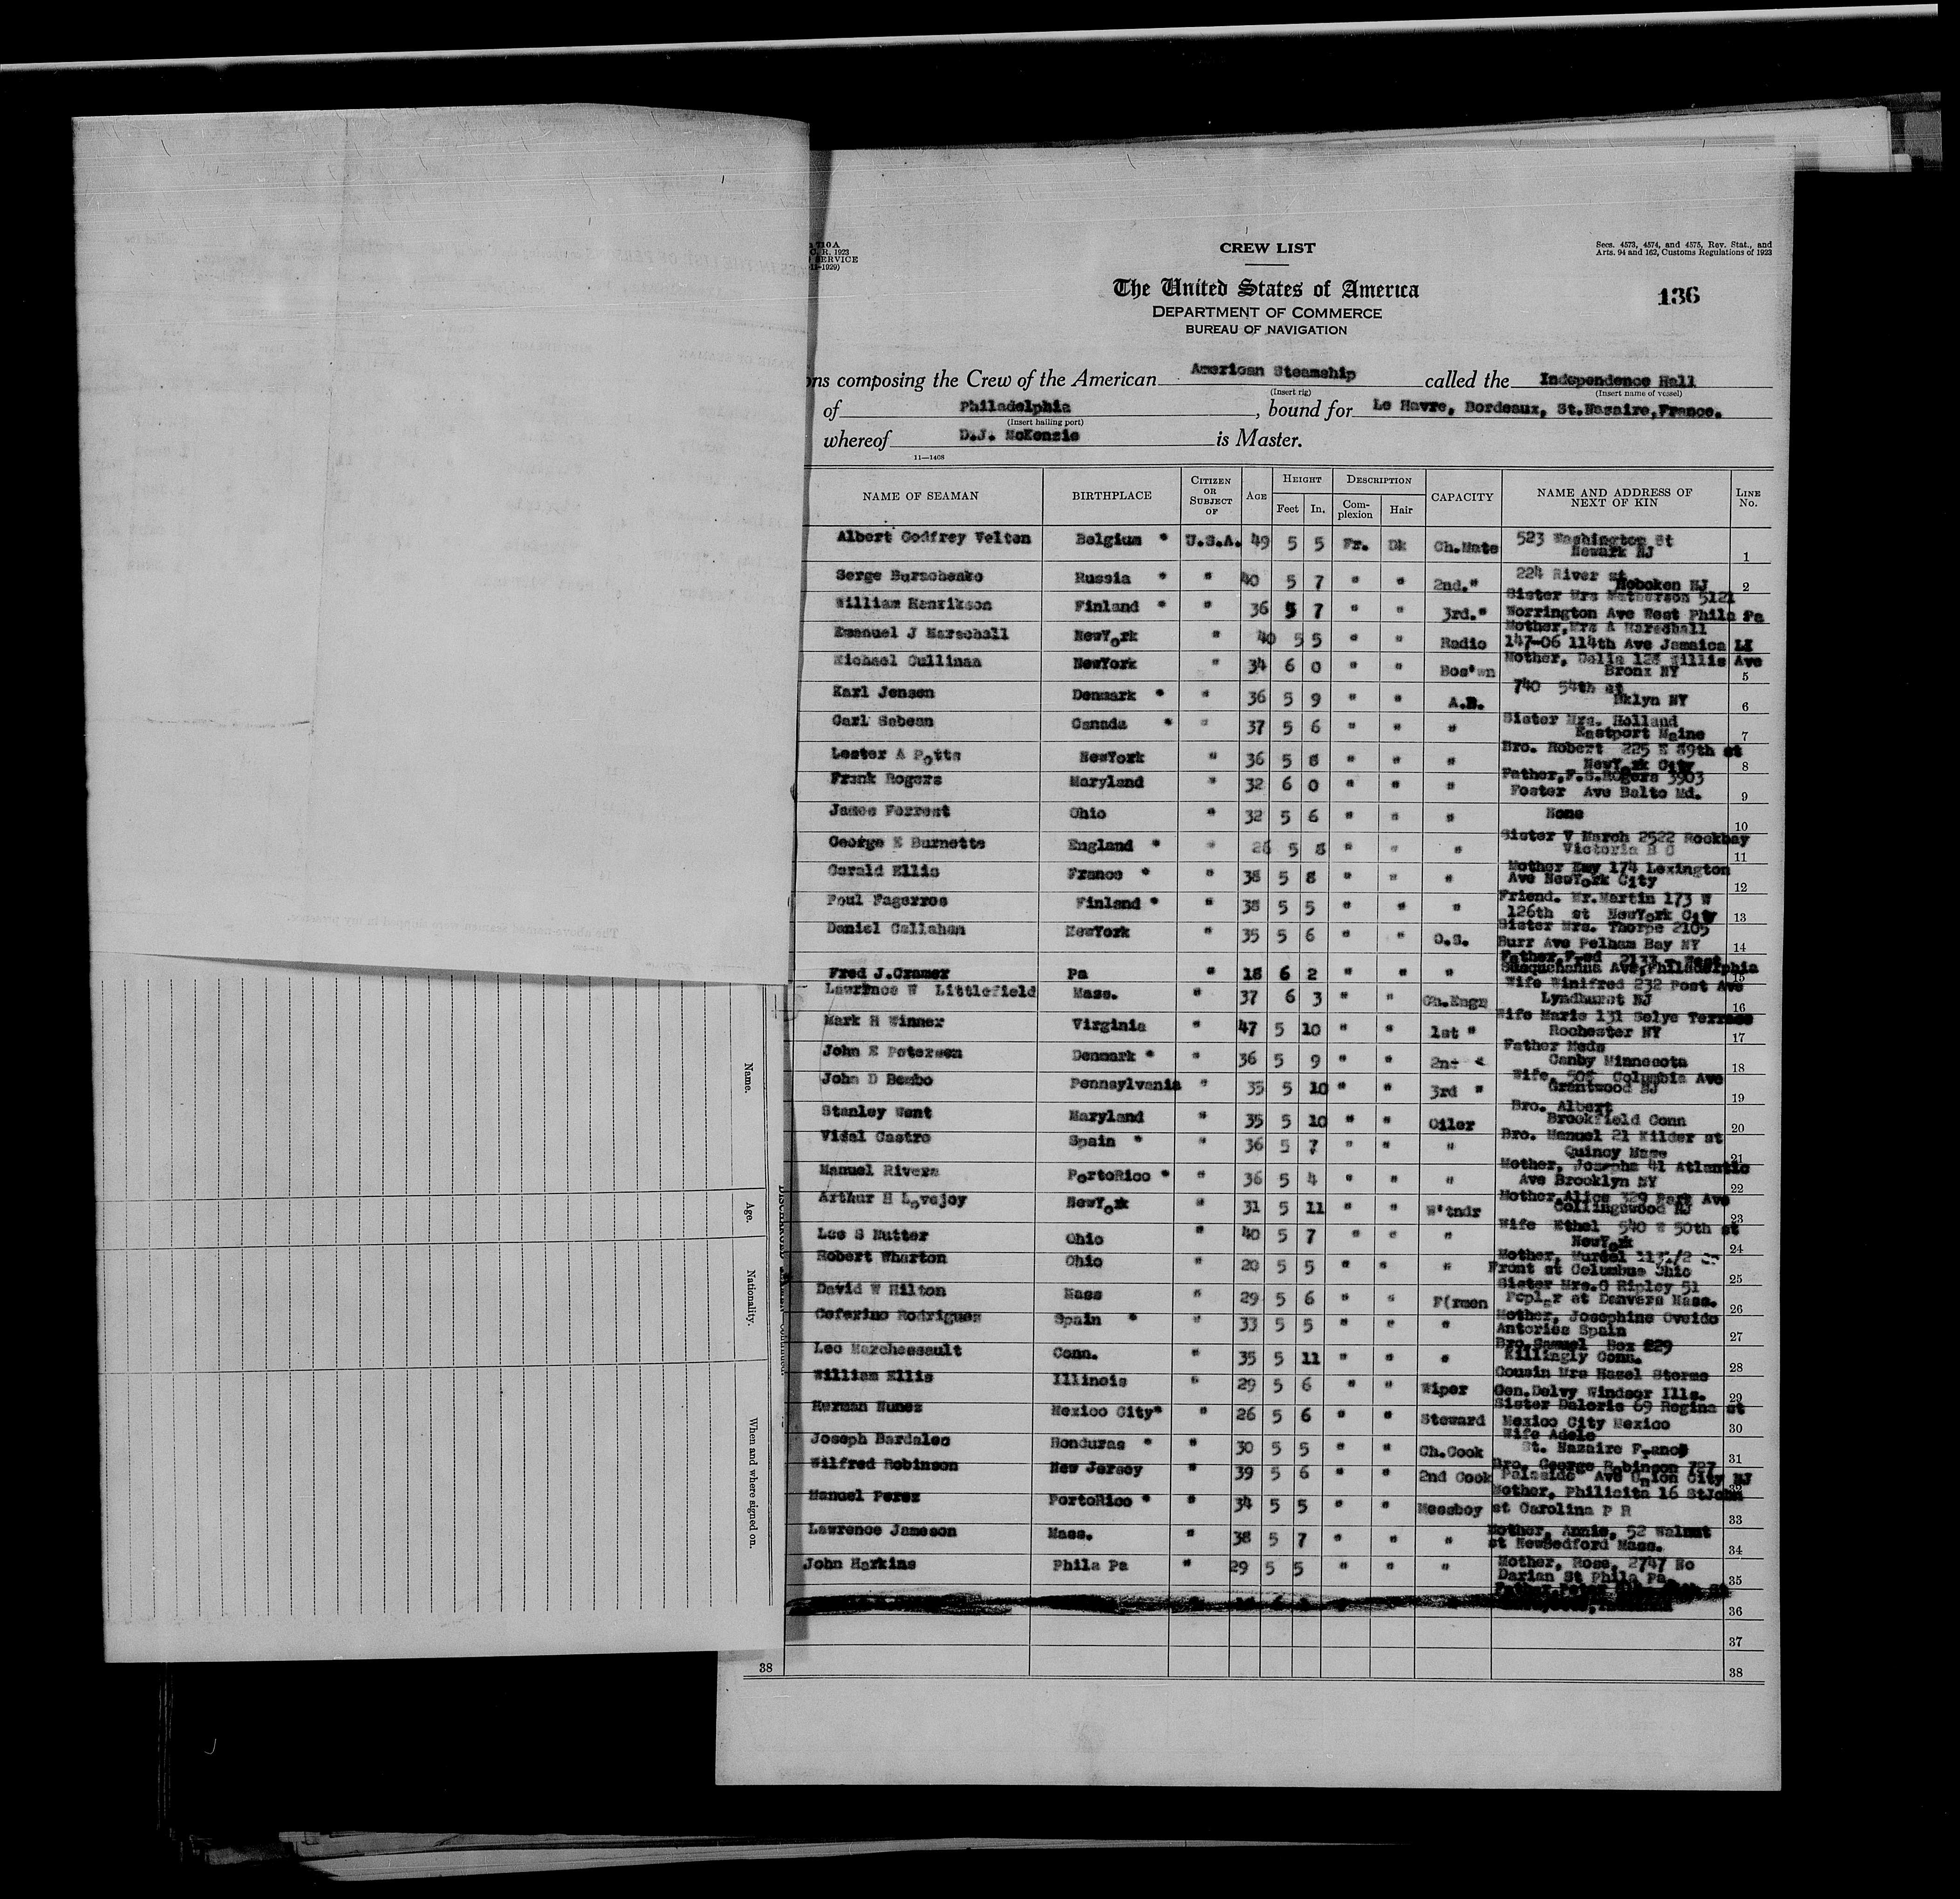 710A
C. R. 1923
SERVICE
11-1929)
CREW LIST
Secs. 4573, 4574, and 4575, Rev. Stat., and
Arts. 94 and 162, Customs Regulations of 1923
The United States of America
136
DEPARTMENT OF COMMERCE
BUREAU OF NAVIGATION
ns composing the Crew of the American American Steamship called the Independence Hall
(Insert rig) (Insert name of vessel)
of Philadelphia, bound for Le Havre, Bordeaux, St.Nazaire,France.
(Insert hailing port)
whereof D.J. McKenzie is Master.
11—1408
NAME OF SEAMAN BIRTHPLACE CITIZEN OR SUBJECT OF AGE HEIGHT Feet In. DESCRIPTION Complexion Hair CAPACITY NAME AND ADDRESS OF NEXT OF KIN LINE No.
Albert Godfrey Velten Belgium * U.S.A. 49 5 5 Fr. Dk Ch.Mate 523 Washington St Newark NJ 1
Serge Burschenko Russia * " 40 5 7 " " 2nd." 224 River st Hoboken NJ 2
William Henrikson Finland * " 36 5 7 " " 3rd." Sister Mrs 5121 Worrington Ave West Phila Pa
Emanuel J Marschall NewYork " 40 5 5 " " Radio Mother,Mrs A Marschall 147-06 114th Ave Jamaica LI
Michael Cullinan NewYork " 34 6 0 " " Bos'wn Mother, Willis Ave Bronx NY 5
Karl Jensen Denmark * " 36 5 9 " " A.B. 740 54th st Bklyn NY 6
Carl Sabean Canada * " 37 5 6 " " " Sister Mrs. Holland Eastport Maine 7
Lester A Potts NewYork " 36 5 8 " " " Bro. Robert 225 E 89th st NewYork City 8
Frank Rogers Maryland " 32 6 0 " " " Father,F.S.ROgers 3903 Foster Ave Balto Md. 9
James Forrest Ohio " 32 5 6 " " " None 10
George E Burnette England * " 28 5 8 " " " Sister V March 2522 Rockbay Victoria B C 11
Gerald Ellis France * " 38 5 8 " " " Mother Emy 174 Lexington Ave NewYork City 12
Poul Fagerros Finland * " 38 5 5 " " " Friend. Mr.Martin 173 W 126th st NewYork City 13
Daniel Callahan NewYork " 35 5 6 " " O.S. Sister Mrs. Thorpe 2105 Burr Ave Pelham Bay NY 14
Fred J.Cramer Pa " 18 6 2 " " " Father,Fred 2133 - West Susquehanna Ave,Philadelphia 15
Lawrence W Littlefield Mass. " 37 6 3 " " Ch.Engr Wife Winifred 232 Post Ave Lyndhurst NJ 16
Mark H Winner Virginia " 47 5 10 " " 1st " Wife Marie 131 Selye Terrace Rochester NY 17
John E Petersen Denmark * " 36 5 9 " " 2nd " Father Mads Canby Minnesota 18
John D Bembo Pennsylvania " 35 5 10 " " 3rd " Wife, Columbia Ave Grantwood NJ 19
Stanley Went Maryland " 35 5 10 " " Oiler Bro. Albert Brookfield Conn 20
Vidal Castro Spain * " 36 5 7 " " " Bro. Manuel 21 Kilder st Quincy Mass 21
Manuel Rivera PortoRico * " 36 5 4 " " " Mother, Josepha 41 Atlantic Ave Brooklyn NY 22
Arthur H Lovejoy NewYork " 31 5 11 " " W'tndr Mother,Alice 329 Park Ave Collingswood NJ 23
Lee S Nutter Ohio " 40 5 7 " " " Wife Ethel 540 W 50th st NewYork 24
Robert Wharton Ohio " 20 5 5 " " " Mother, Front st Columbus Ohio 25
David W Hilton Mass " 29 5 6 " " F(rmen Sister Mrs.G Ripley 51 Poplar st Danvers Mass. 26
Ceferino Rodriguez Spain * " 33 5 5 " " " Mother, Josephine Oveido Antories Spain 27
Leo Marchessault Conn. " 35 5 11 " " " Bro.Samuel Box 229 Killingly Conn. 28
William Ellis Illinois " 29 5 6 " " Wiper Cousin Mrs Hazel Storms Gen.Delvy Windsor Ills. 29
Herman Nunez Mexico City* " 26 5 6 " " Steward Sister Daloris 69 Regina st Mexico City Mexico 30
Joseph Bardales Honduras * " 30 5 5 " " Ch.Cook Wife Adele St. Nazaire France 31
Wilfred Robinson New Jersey " 39 5 6 " " 2nd Cook Bro. George Robinson 727 Palaside Ave Union City NJ 32
Manuel Perez PortoRico * " 34 5 5 " " Messboy Mother, Philicita 16 StJohn st Carolina P R 33
Lawrence Jameson Mass. " 38 5 7 " " " Mother, Annie, 52 Walnut st NewBedford Mass. 34
John Harkins Phila Pa " 29 5 5 " " " Mother, Rose, 2747 No Darian St Phila Pa 35
36
37
38 38
Name.
Age.
Nationality.
When and where signed on.